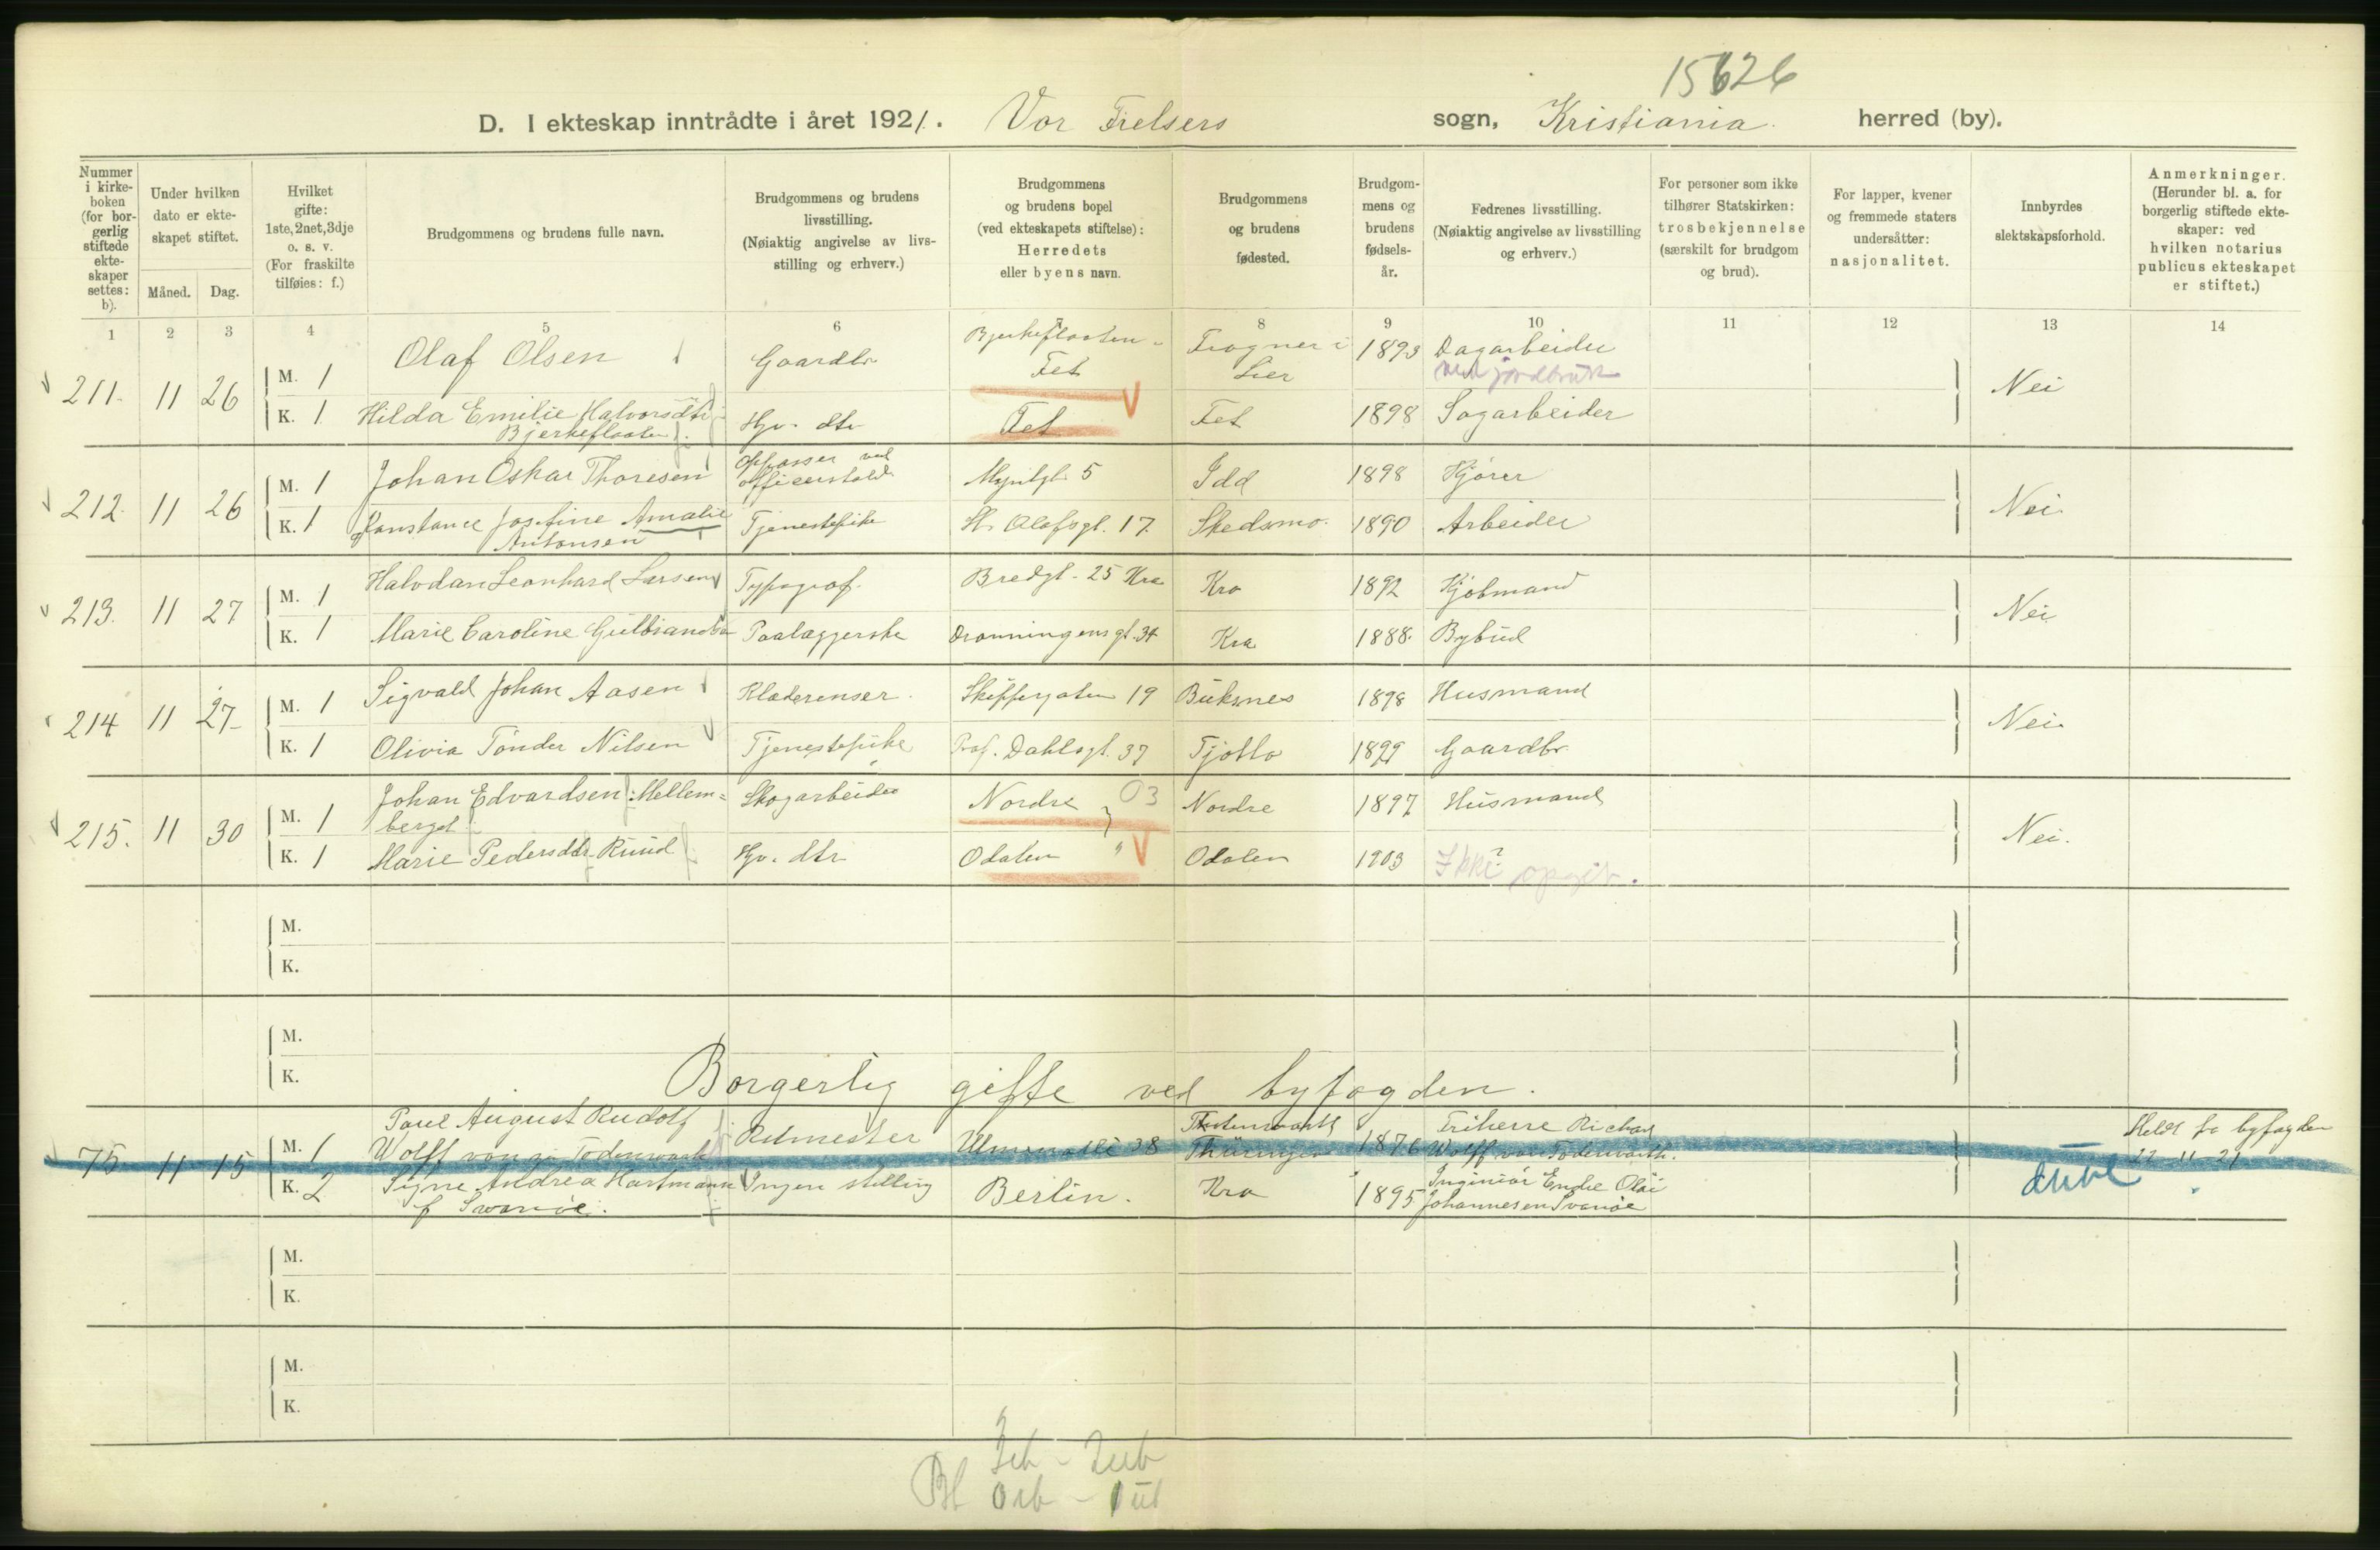 15626
D. I ekteskap inntrådte i året 1921. Vor Frelsers sogn, Kristiania. herred (by).
Nummer i kirke-boken (for bor-gerlig stiftede ekte-skaper settes: b).
Under hvilken dato er ekte-skapet stiftet.
Måned. Dag.
Hvilket gifte: 1ste, 2net, 3dje o. s. v. (For fraskilte tilføies: f.)
Brudgommens og brudens fulle navn.
Brudgommens og brudens livsstilling. (Nøiaktig angivelse av livs-stilling og erhverv.)
Brudgommens og brudens bopel (ved ekteskapets stiftelse): Herredets eller byens navn.
Brudgommens og brudens fødested.
Brudgom-mens og brudens fødsels-år.
Fedrenes livsstilling. (Nøiaktig angivelse av livsstilling og erhverv.)
For personer som ikke tilhører Statskirken: trosbekjennelse (særskilt for brudgom og brud).
For lapper, kvener og fremmede staters undersåtter: nasjonalitet.
Innbyrdes slektskapsforhold.
Anmerkninger. (Herunder bl. a. for borgerlig stiftede ekte-skaper: ved hvilken notarius publicus ekteskapet er stiftet.)
1 2 3 4 5 6 7 8 9 10 11 12 13 14
211. 11 26 M. 1 Olaf Olsen Gaardbr. Bjerkeflaaten Fet Frogner i Lier 1893 Dagarbeider ved jordbruk Nei
K. 1 Hilda Emilie Halvorsdtr Bjerkeflaaten Gv. dtr Fet Fet 1898 Sagarbeider
212. 11 26 M. 1 Johan Oskar Thoresen Oppasser ved Myntgt 5 Idd 1898 Kjører Nei.
K. 1 Konstance Josefine Amalie Antonsen Tjenestepike St. Olafsgt. 17. Skedsmo. 1890 Arbeider
213. 11 27 M. 1 Halvdan Leonhard Larsen Typograf. Bredgt. 25 Kra Kra 1892 Kjøbmand Nei
K. 1 Marie Caroline Gulbrandsen Paalæggerske Dronningens gt. 34 Kra 1888. Bybud
214 11 27 M. 1 Sigvald Johan Aasen Klæderenser. Skippergaten 19 Buksnes 1898 Husmand Nei
K. 1 Olivia Tønder Nilsen Tjenestepike Prof. Dahlsgt. 37 Tjøtta 1899 Gaardbr.
215. 11 30 M. 1 Johan Edvardsen Mellem=berget Skogarbeider Nordre 03 Nordre 1897 Husmand Nei.
K. 1 Marie Pedersdtr. Ruud Gv. dtr Odalen " Odalen 1903 Ikke opgit.
M.
K.
M.
K.
Borgerlig gifte ved byfogden.
75 11 15 M. 1 Paul August Rudolf Wolff von Todenwarth Ritmester Ulmenalle 38 Thüringen 1876 Friherre Richard Wolff von Todenwarth. Meldt fra byfogden 22-11-21
K. 2 Signe Andrea Hartmann f. Svanøe. Ingen stilling Berlin. Kra 1895 Ingeniør Endre Olai Johannesen Svanøe
M.
K.
M.
K.